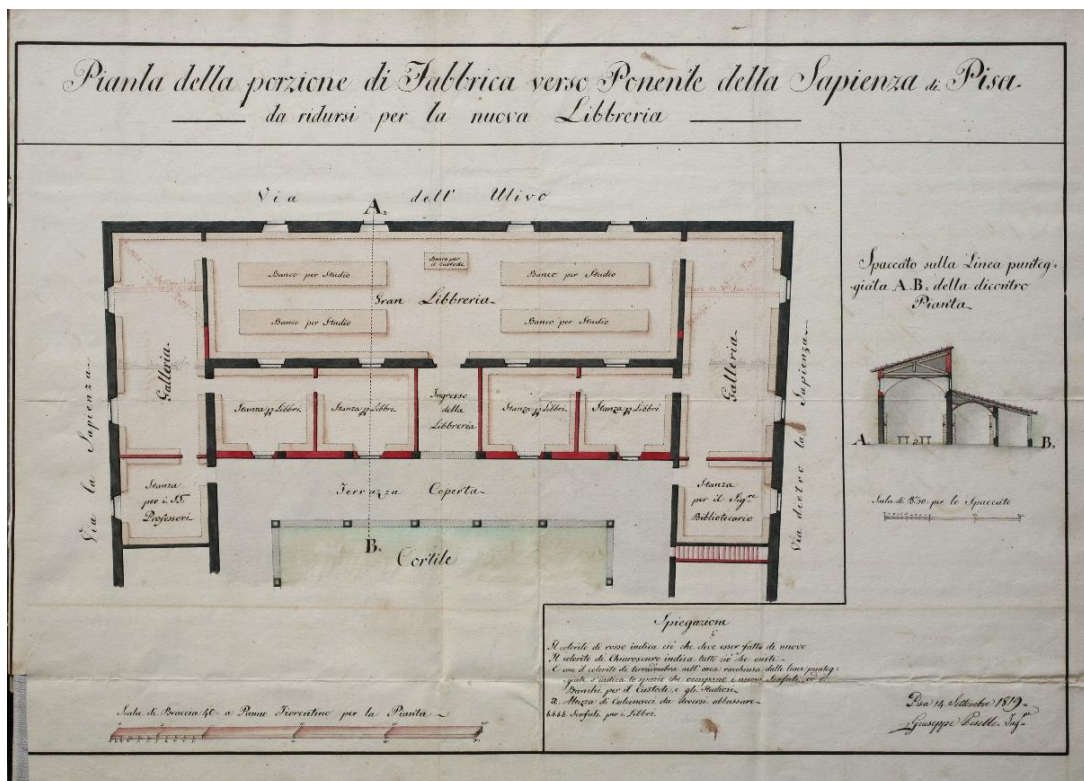 Pianta della porzione di Fabbrica verso Ponente della Sapienza di Pisa
da ridursi per la nuova Libbreria
Via dell' Ulivo
A.
Banco per
il Custode
Banco per Studio
Banco per Studio
Gran Libbreria
Banco per Studio
Banco per Studio
Galleria
Galleria
Via la Sapienza
Via dietro la Sapienza
Stanza pp Libbri
Stanza pp Libbri
Ingresso
della
Libbreria
Stanza pp Libbri
Stanza pp Libbri
Stanza
per i SS.
Professori
Terrazza Coperta
Stanza
per il Sigre
Bibliotecario
B.
Cortile
Spaccato sulla Linea punteg-
giata A.B. della dicontro
Pianta
A.
B.
Scala di per lo Spaccato
Spiegazioni
Il colorito di rosso indica ciò che deve esser fatto di nuovo
Il colorito di Chiaroscuro indica tutto ciò che esiste
E con il colorito di terra d'ombra nell' area racchiusa dalle linee punteg-
giate s'indica lo spazio che occupano i nuovi Scafali, ed i
Banchi per il Custode, e gli Studiosi
a. Altezza di da doversi abbassare
bbbb Scafali per i Libbri
Scala di Braccia 40 a Panno Fiorentino per la Pianta
Pisa 14 Settembre 1819
Giuseppe Ingre